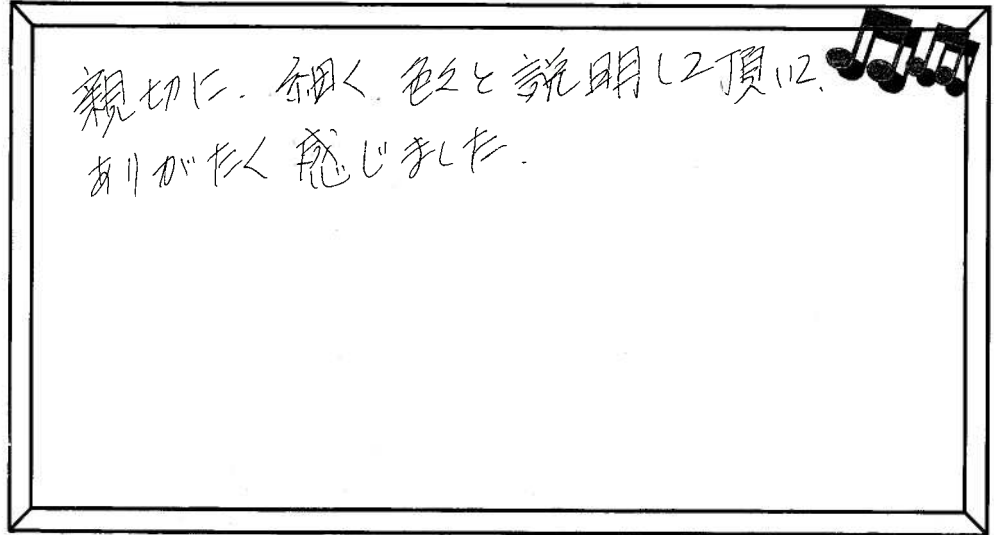 親切に、細く 色々と説明して頂いて、
ありがたく感じました。